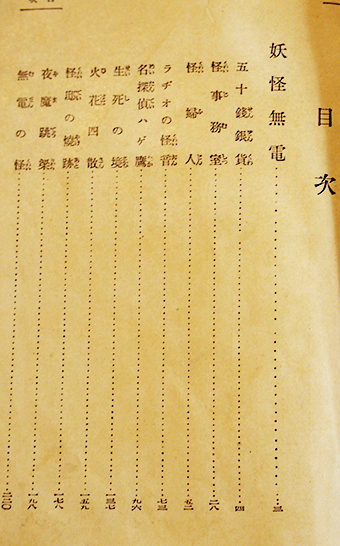 目次
妖怪無電……三
五十錢銀貨……四
怪事務室……二八
怪婦人……五二
ラヂオの怪音……七三
名探偵ハゲ鷹……九六
生死の境……一三七
火花四散……一五九
怪邸の燒跡……一七八
夜魔跳梁……一九八
無電の怪……二二〇